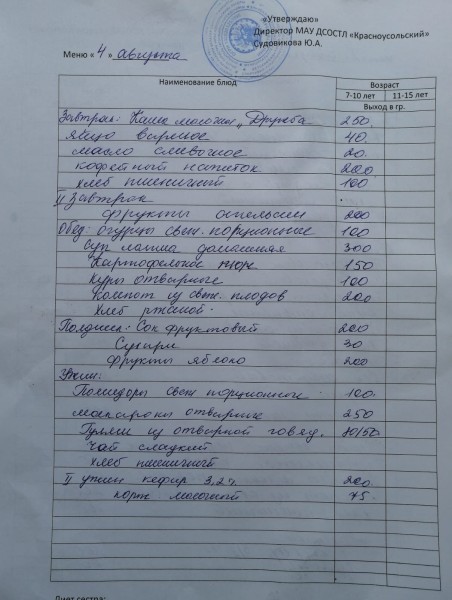 «Утверждаю»
Директор МАУ ДСОСТЛ «Красноусольский»
Судовикова Ю.А.
Меню « 4 » августа
Наименование блюд Возраст
7-10 лет 11-15 лет
Выход в гр.
Завтрак: Каша молочная „Дружба 250.
яйцо варёное 40.
масло сливочное 20.
кофейный напиток 200
хлеб пшеничный 100
II Завтрак
фрукты апельсин 200
Обед: огурцы свеж. порционные 100
Суп лапша домашняя 300
Картофельное пюре 150
Куры отварные 100
Компот из свеж. плодов 200
Хлеб ржаной.
Полдник: Сок фруктовый 200
Сухари 30
Фрукты яблоко 200
Ужин:
Помидоры свеж порционные 100.
макароны отварные 250
Гуляш из отварной говяд. 80/50
Чай сладкий
хлеб пшеничный
II ужин кефир 3,2% 200.
корж молочный 75.
Диет сестра: